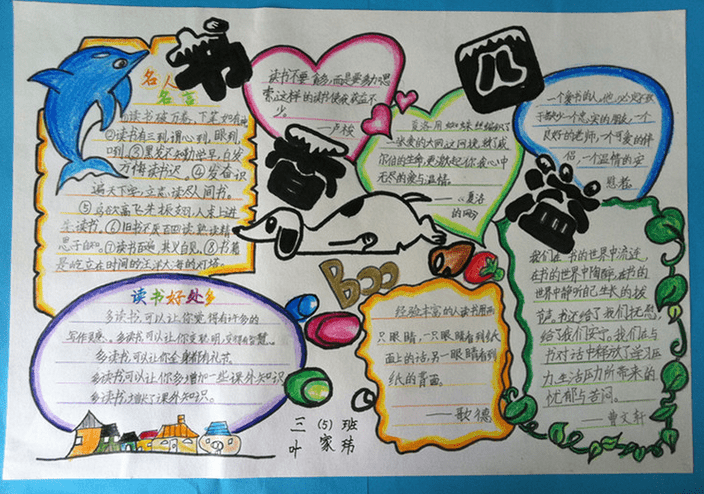 书
香
四
溢
名人
名言
①读书破万卷，下笔如有神
②读书有三到，谓心到，眼到
口到。③黑发不知勤学早，白发
方悔读书迟。④发奋识
遍天下字，立志读尽人间书。
⑤鸟欲高飞先振翅，人求上进
先读书。⑥旧书不厌百回读，熟读精
思子自知。⑦读书百遍，其义自见。⑧书籍
是屹立在时间的汪洋大海的灯塔。
读书不要贪多，而是要多加思
索，这样的读书使我获益不
少。
——卢梭
夏洛用蜘蛛丝编织了
一张爱的大网，这网挽救了威
尔伯的生命，更激起你我心中
无尽的爱与温情。
——《夏洛
的网》
一个爱书的人，他必定不致
于缺少一个忠实的朋友，一个
良好的老师，一个可爱的伴
侣，一个温情的安
慰者。
读书好处多
多读书，可以让你觉得有许多的
写作灵感。多读书，可以让你变聪明，变得有智慧
多读书，可以让你全身都有礼节
多读书可以让你多增加一些课外知识
多读书，增长了课外知识。
Boo
经验丰富的人读书用两
只眼睛，一只眼睛看到纸
面上的话，另一眼睛看到
纸的背面。
——歌德
我们在书的世界中流连，
在书的世界中陶醉，在书的
世界中静听自己生长的拔
节声，书还给了我们抚慰，
给了我们安宁。我们在与
书对话中释放了学习压
力、生活压力所带来的
忧郁与苦闷。
——曹文轩
三（5）班
叶家玮